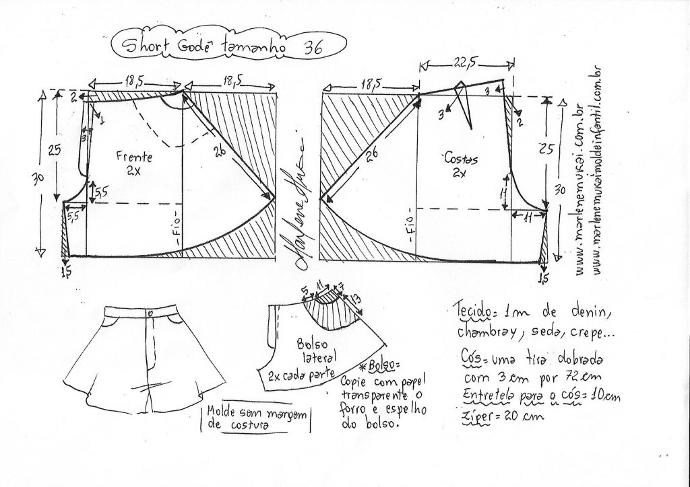 Short Godê tamanho 36
18,5
18,5
2
1
3
25
30
5,5
5,5
1,5
Frente
2x
26
-Fio-
Marlene Mukai
22,5
18,5
3
3
2
26
Costas
2x
25
30
11
11
1,5
-Fio-
www.marlenemukai.com.br
www.marlenemukaimoldeinfantil.com.br
5
11
7
13
Bolso
lateral
2x cada parte
* Bolso=
Copie com papel
transparente o
forro e espelho
do bolso.
Molde sem margem
de costura
Tecido= 1m de denin,
chambray, seda, crepe...
Cós= uma tira dobrada
com 3cm por 72cm
Entretela para o cós= 10cm
zíper= 20 cm